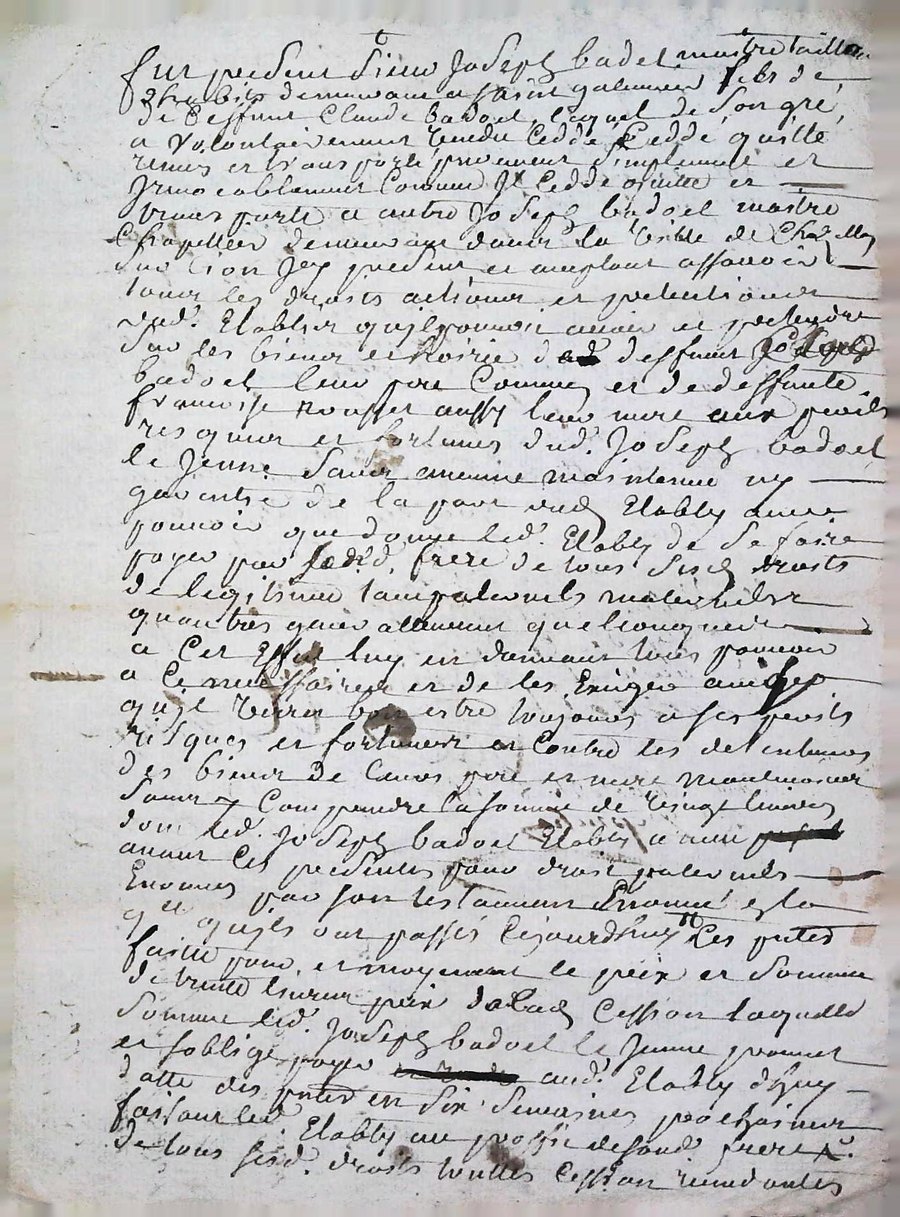 fut present Sieur Joseph badoel maitre tailleur
d'habits demeurant a saint galmier fils de
de deffunt Claude badoel, lequel de Son gré
a volontairement vendu Ceddé, Ceddé, quitté
remis et transporté purement simplement et
Irrevocablement Comme Il Cedde quitte et
transporte a autre Joseph badoel maitre
Chapellier demeurant dans la ville de Chazelles
sur lion Icy present et acceptant assavoir
tous les droits actions et pretentions
dud. Etably qu'il pouvoit avoir et pretendre
sur les biens et hoirie de deffunt
badoel leur pere Commun et de deffunte
francoise aussy leur mere aux perils
risques et fortunes dud. Joseph badoel
le Jeune Sans aucune maintenue ny
garentie de la part dud Etably avec
pouvoir que donne led. Etably de se faire
payer par sond. frere de tous Sesd droits
de legitime tant paternels maternels
qu'autres generallement quelconques
a Cet Effet luy en donnant tous pouvoir
a Ce necessaires et de les Exiger ainsy
qu'il verra bon estre toujours a ses perils
risques et fortunes et Contre les detenteurs
des biens de leurs pere et mere
Sans y Comprendre la somme de vingt livres
dont led. Joseph badoel Etably a
avant Ces presentes pour droit paternels
Enoncés par son testament Enoncé
qu'ils ont passés Cejourdhuy Les putes
faitte pour et moyenant le prix et Somme
de trente livres prix de lad Cession laquelle
Somme led. Joseph badoel le Jeune promet
et soblige payer aud. Etably d'huy
datte des putes en Six Semaines prochaines
faisant led. Etably au proffit de sond. frere
de tous sesd. droits touttes Cession